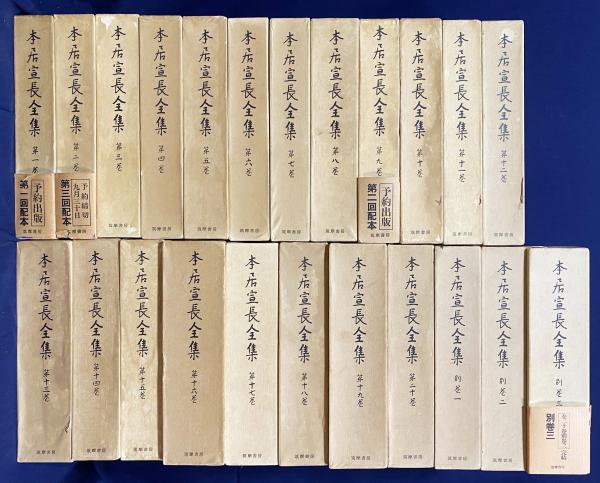 本居宣長全集 第一巻
予約出版
第一回配本
本居宣長全集 第二巻
予約締切
九月二十日
第三回配本
筑摩書房
本居宣長全集 第三巻
筑摩書房
本居宣長全集 第四巻
筑摩書房
本居宣長全集 第五巻
筑摩書房
本居宣長全集 第六巻
筑摩書房
本居宣長全集 第七巻
筑摩書房
本居宣長全集 第八巻
筑摩書房
本居宣長全集 第九巻
予約出版
第二回配本
筑摩書房
本居宣長全集 第十巻
筑摩書房
本居宣長全集 第十一巻
筑摩書房
本居宣長全集 第十二巻
筑摩書房
本居宣長全集 第十三巻
筑摩書房
本居宣長全集 第十四巻
筑摩書房
本居宣長全集 第十五巻
筑摩書房
本居宣長全集 第十六巻
筑摩書房
本居宣長全集 第十七巻
筑摩書房
本居宣長全集 第十八巻
筑摩書房
本居宣長全集 第十九巻
筑摩書房
本居宣長全集 第二十巻
筑摩書房
本居宣長全集 別巻一
筑摩書房
本居宣長全集 別巻二
筑摩書房
本居宣長全集 別巻三
別巻三
筑摩書房